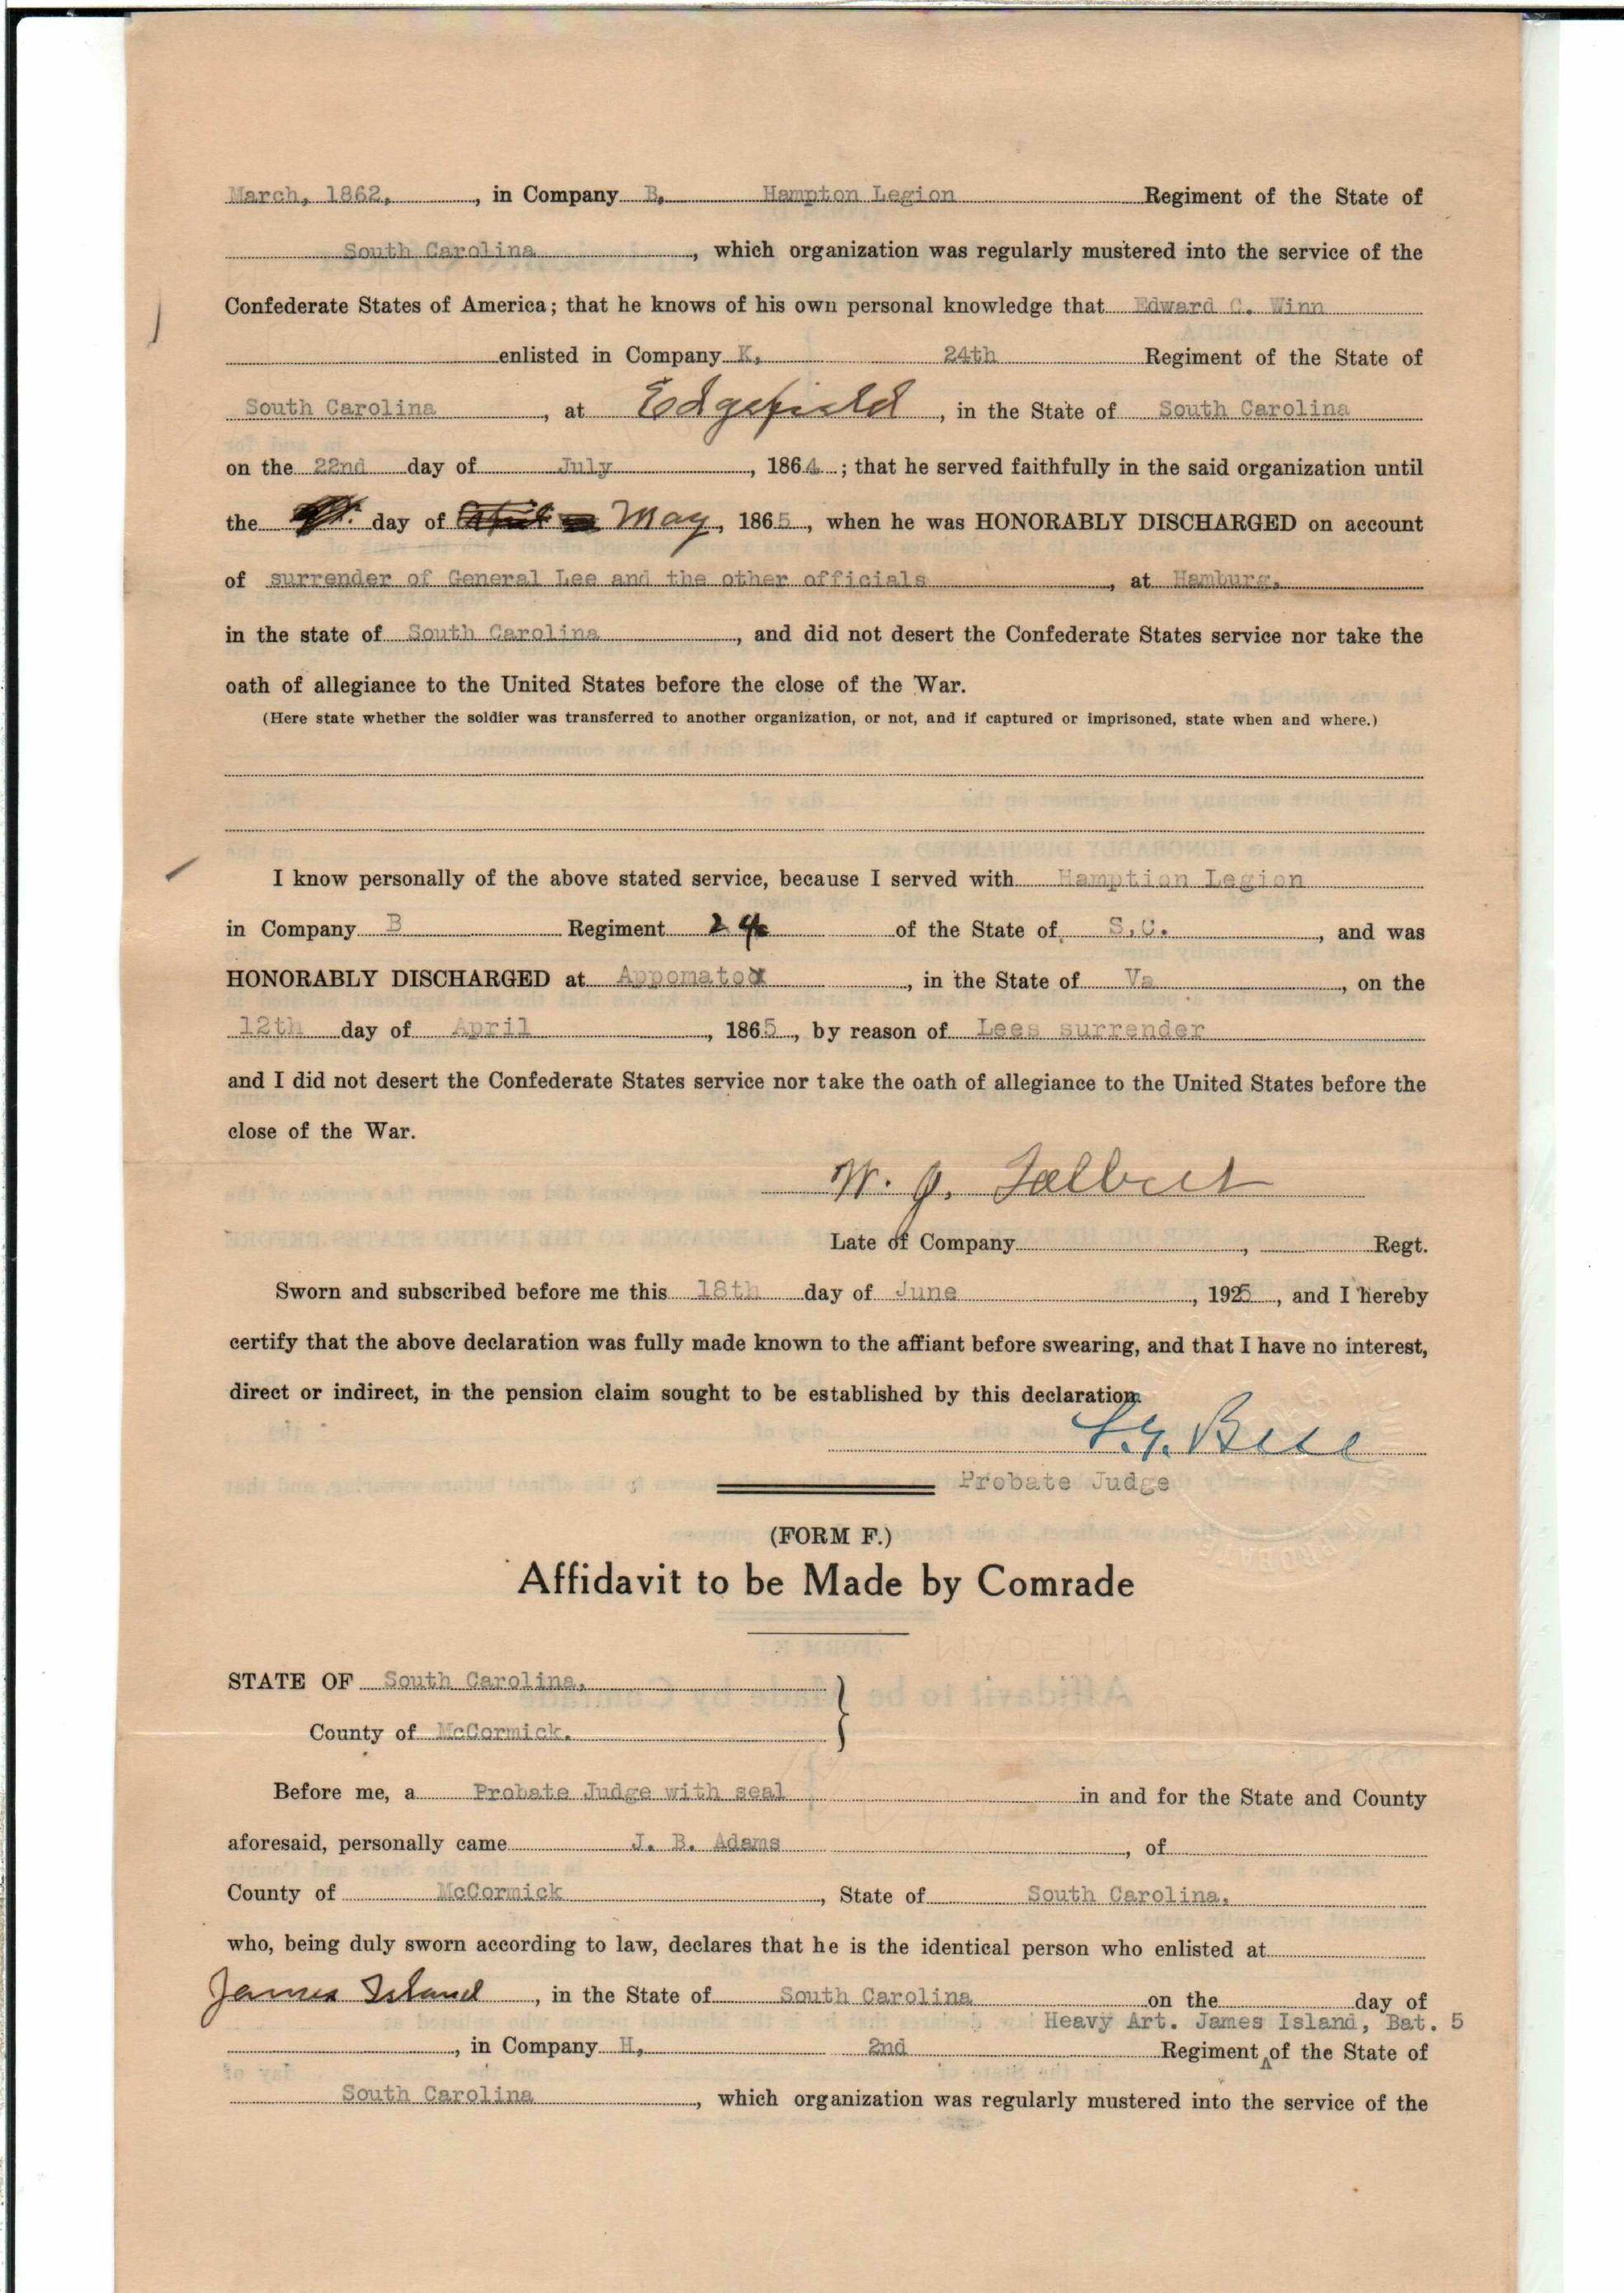 March, 1862, , in Company B, Hampton Legion Regiment of the State of
South Carolina , which organization was regularly mustered into the service of the
Confederate States of America; that he knows of his own personal knowledge that Edward C. Winn
enlisted in Company K, 24th Regiment of the State of
South Carolina , at Edgefield , in the State of South Carolina
on the 22nd day of July , 1864 ; that he served faithfully in the said organization until
the day of May , 1865 , when he was HONORABLY DISCHARGED on account
of surrender of General Lee and the other officials , at Hamburg,
in the state of South Carolina , and did not desert the Confederate States service nor take the
oath of allegiance to the United States before the close of the War.
(Here state whether the soldier was transferred to another organization, or not, and if captured or imprisoned, state when and where.)
I know personally of the above stated service, because I served with Hamption Legion
in Company B Regiment 24 of the State of S.C. , and was
HONORABLY DISCHARGED at Appomatox , in the State of Va , on the
12th day of April , 1865 , by reason of Lees surrender
and I did not desert the Confederate States service nor take the oath of allegiance to the United States before the
close of the War.
W. J. Talbert
Late of Company , Regt.
Sworn and subscribed before me this 18th day of June , 1925 , and I hereby
certify that the above declaration was fully made known to the affiant before swearing, and that I have no interest,
direct or indirect, in the pension claim sought to be established by this declaration.
Probate Judge
(FORM F.)
Affidavit to be Made by Comrade
STATE OF South Carolina, }
County of McCormick.
Before me, a Probate Judge with seal in and for the State and County
aforesaid, personally came J. B. Adams , of
County of McCormick , State of South Carolina,
who, being duly sworn according to law, declares that he is the identical person who enlisted at
James Island , in the State of South Carolina on the day of
Heavy Art. James Island, Bat. 5
, in Company H, 2nd Regiment ^ of the State of
South Carolina , which organization was regularly mustered into the service of the